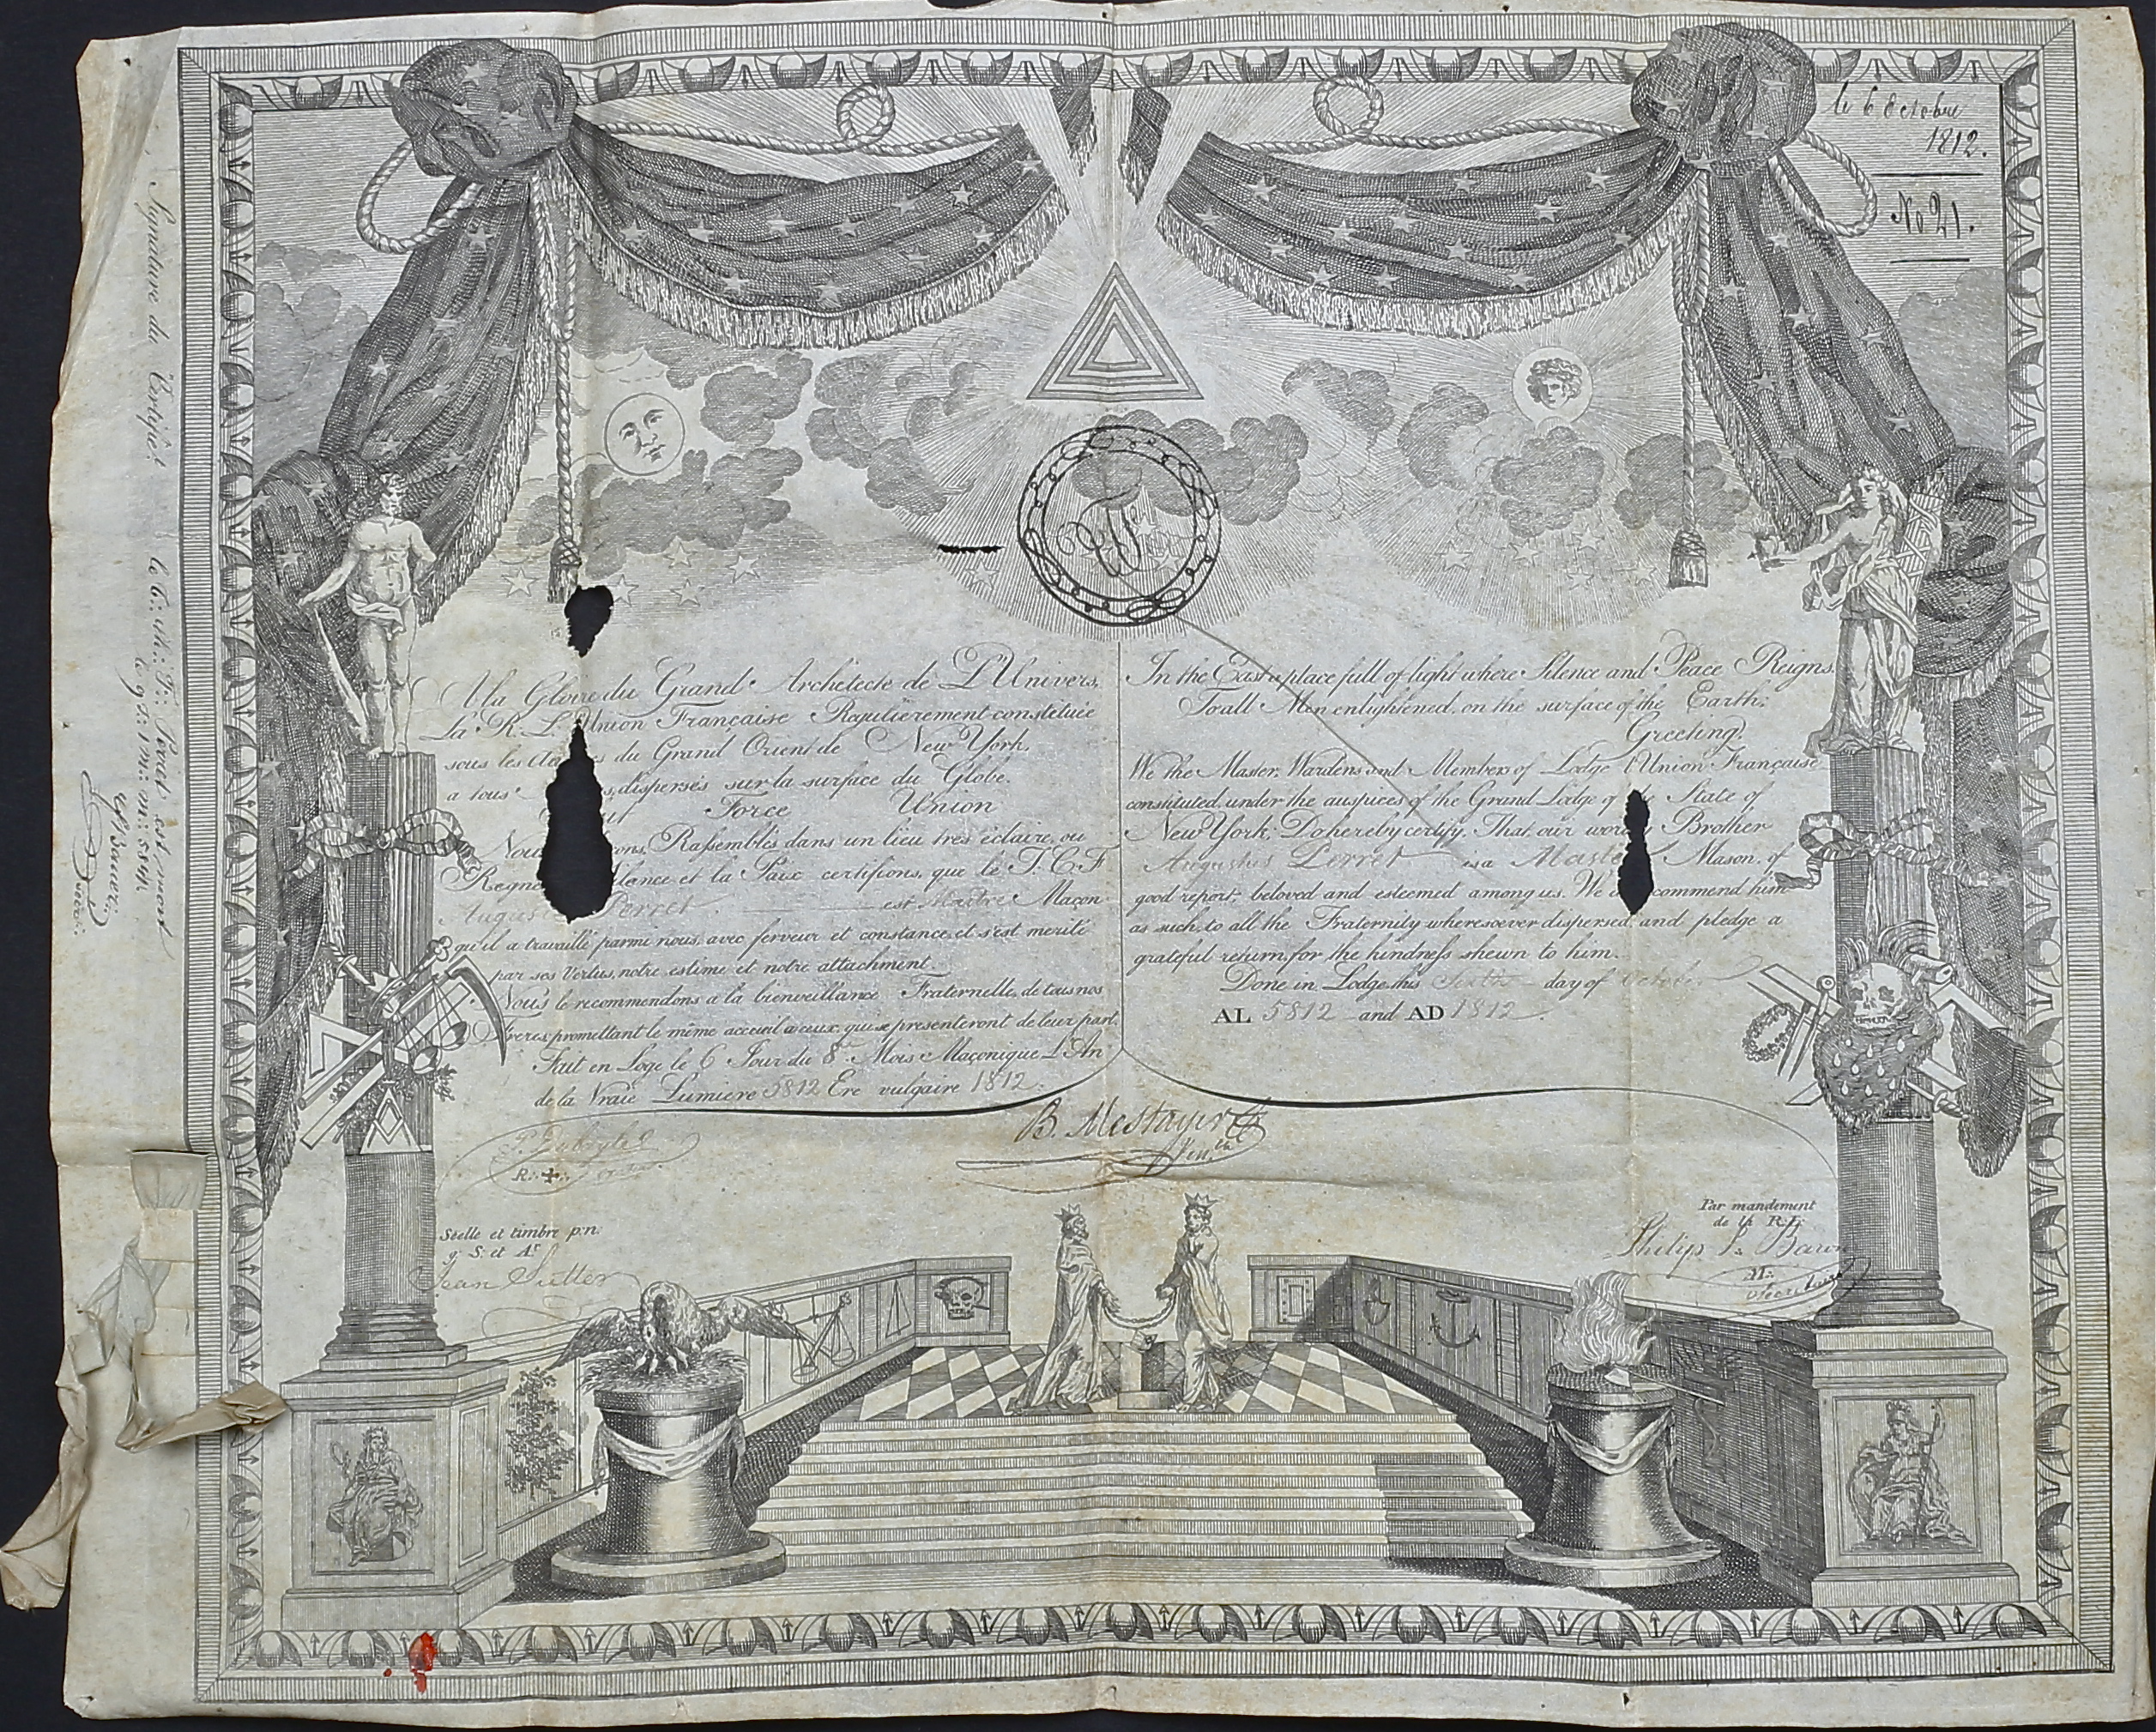 le 6 Octobre
1812.
No 21.
A la Gloire du Grand Architecte de L'Univers,
La R. L. L'Union Française Regulierement constituée
sous les du Grand Orient de New York.
a tous dispersés sur la surface du Globe.
Force Union
Rassemblés dans un lieu très eclairé, ou
et la Paix certifions, que le T. C. F
Perret est Maitre Maçon
qu'il a travaillé parmi nous, avec ferveur et constance, et s'est merité
par ses Vertus, notre estime et notre attachment.
Nous le recommendons a la bienveillance Fraternelle, de tous nos
Freres promettant le même accueil a ceux, qui se presenteront de leur part.
Fait en Loge le 6 Jour du 8e Mois Maçonique L'An
de la Vraie Lumiere 5812 Ere vulgaire 1812.
In the East a place full of light where Silence and Peace Reigns.
To all Men enlightened, on the surface of the Earth;
Greeting.
We the Master, Wardens and Members of Lodge l'Union Française
constituted, under the auspices of the Grand Lodge of State of
New York; Do hereby certify, That our Brother
Augustus Perret is a Master Mason, of
good report; beloved and esteemed among us. We commend him
as such, to all the Fraternity wheresoever dispersed, and pledge a
grateful return, for the kindness shewn to him.
Done in Lodge this Sixth day of October
AL 5812 and AD 1812
B. Mestayer
R.
Scelle et timbre p. n.
g. S. et Ar
Jean Sutter
Par mandement
de la R. L.
Philip
Signature du
est mort